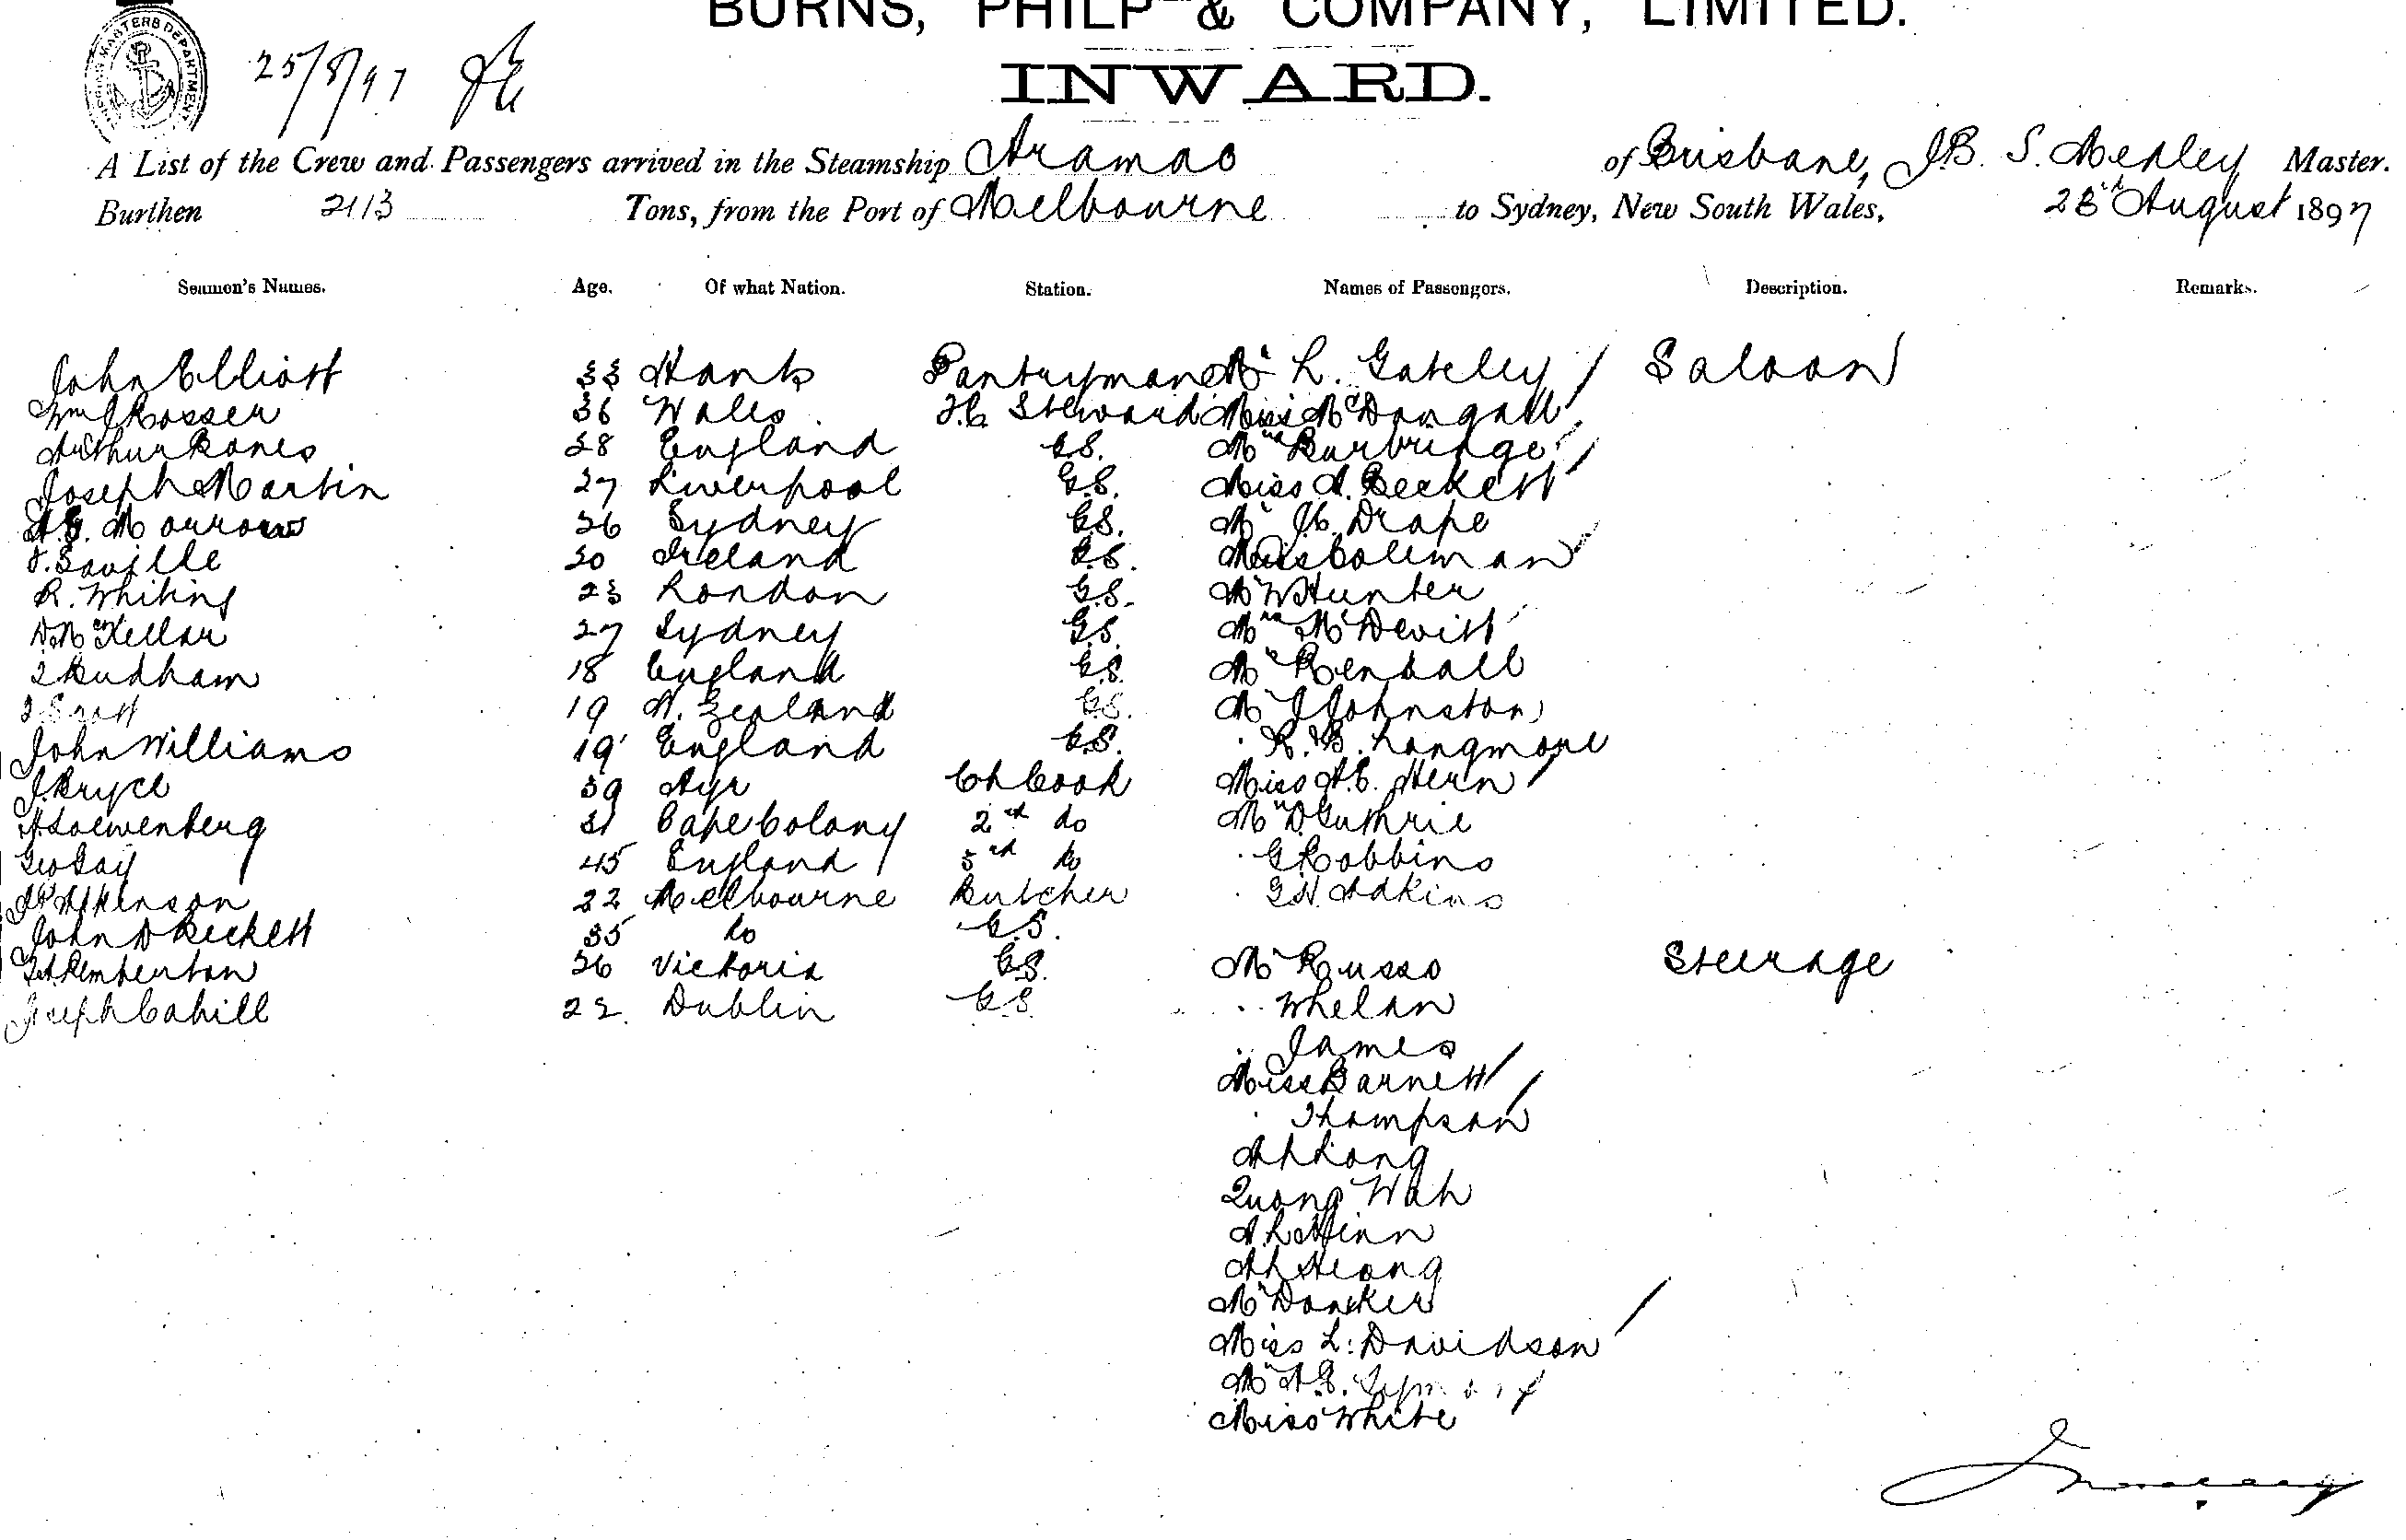 BURNS, PHILP & COMPANY, LIMITED.
SHIPPING MASTERS DEPARTMENT
25/8/97
INWARD.
A List of the Crew and Passengers arrived in the Steamship Aramac of Brisbane, J.B. S. Medley Master.
Burthen 2113 Tons, from the Port of Melbourne to Sydney, New South Wales, 25th August 1897
Seamen's Names. Age. Of what Nation. Station. Names of Passengers. Description. Remarks.
John Elliott 33 Hants Pantryman Mr L. Gateley Saloon
Wm J Rosser 36 Wales F.C. Steward Miss McDougall
Arthur Bones 28 England G.S. Mrs Burbridge
Joseph Martin 27 Liverpool G.S. Miss A. Beckett
A.G. Morrow 26 Sydney G.S. Mr Drape
J. Saville 30 Ireland G.S. Miss Coleman
R. Whiting 23 London G.S. Mr W Hunter
D. McKellar 27 Sydney G.S. Mrs McDevitt
Budham 18 England G.S. Mr Kendall
19 N. Zealand G.S. Mr J Johnston
John Williams 19 England G.S. R.B. Longmore
J. Bryce 39 Ayr Ch Cook Miss A.E. Hern
A Loewenberg 31 Cape Colony 2nd do Mr D Guthrie
Geo Gay 45 England 3rd do G Robbins
Atkinson 22 Melbourne Butcher G.H. Adkins
John D Beckett 35 do G.S.
Pemberton 26 Victoria G.S. Mr Russo Steerage
Joseph Cahill 22 Dublin G.S. Whelan
James
Miss Barnett
Thompson
Ah Kong
Quong Wah
Ah Hinn
Ah Heong
Mr Doncker
Miss L. Davidson
Mr A.G.
Miss White